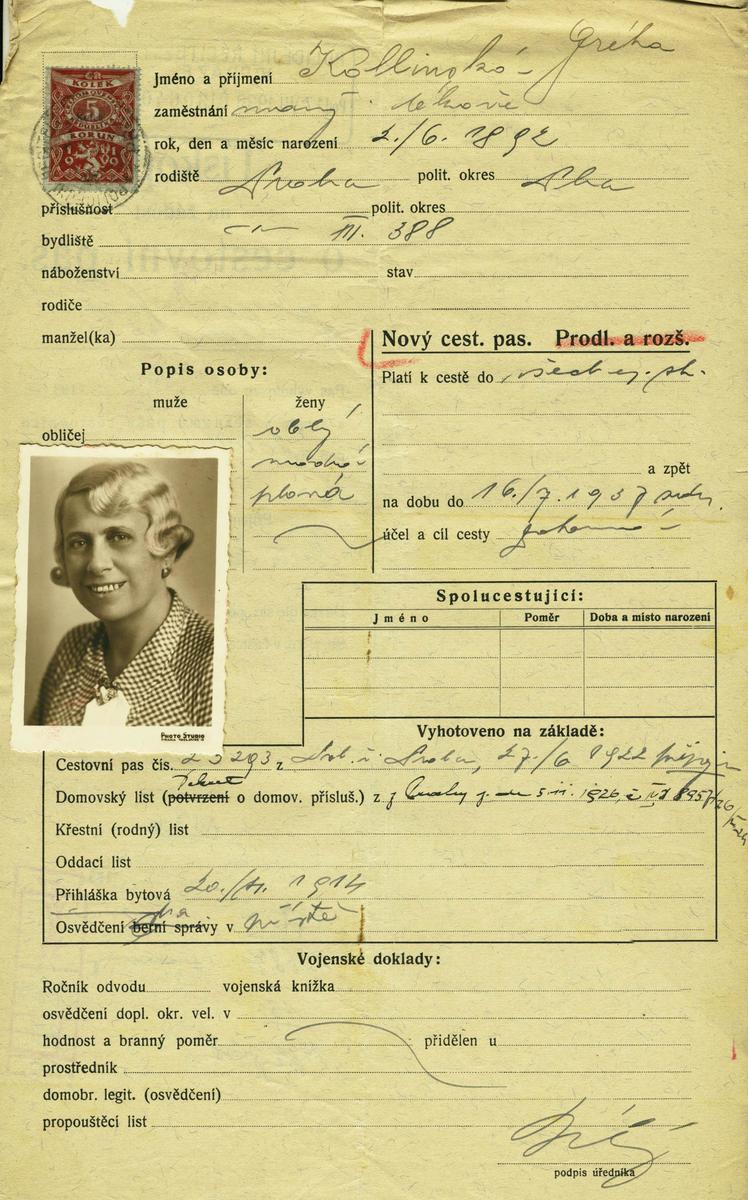 ČR
KOLEK
5
KORUN
Jméno a příjmení Kollinská Gréta
zaměstnání
rok, den a měsíc narození 2./6. 1892
rodiště Praha polit. okres Pha
příslušnost polit. okres
bydliště III. 388
náboženství stav
rodiče
manžel(ka)
Nový cest. pas. Prodl. a rozš.
Popis osoby:
muže ženy
obličej oblý
modré
plavá
Platí k cestě do
a zpět
na dobu do 16./7. 1937
účel a cíl cesty
Spolucestující:
Jméno Poměr Doba a místo narození
PHOTO STUDIO
Vyhotoveno na základě:
Cestovní pas čís. z Praha, 27./6 1922
Domovský list (potvrzení o domov. přísluš.) z 1926
Křestní (rodný) list
Oddací list
Přihláška bytová 1914
Osvědčení berní správy v místě
Vojenské doklady:
Ročník odvodu vojenská knížka
osvědčení dopl. okr. vel. v
hodnost a branný poměr přidělen u
prostředník
domobr. legit. (osvědčení)
propouštěcí list
podpis úředníka